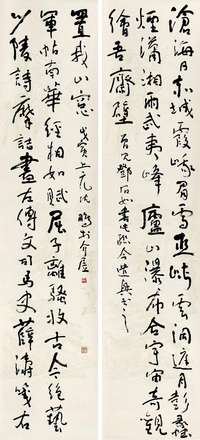 滄海日赤城霞峨眉雪巫峽雲洞庭月彭蠡
煙瀟湘雨武夷峰廬山瀑布合宇宙奇觀
繪吾齋壁
少陵詩摩詰畫左傳文司馬史薛濤箋右
軍帖南華經相如賦屈子離騷收古今絕藝
置我山窗 戊寅 沈鵬 介居